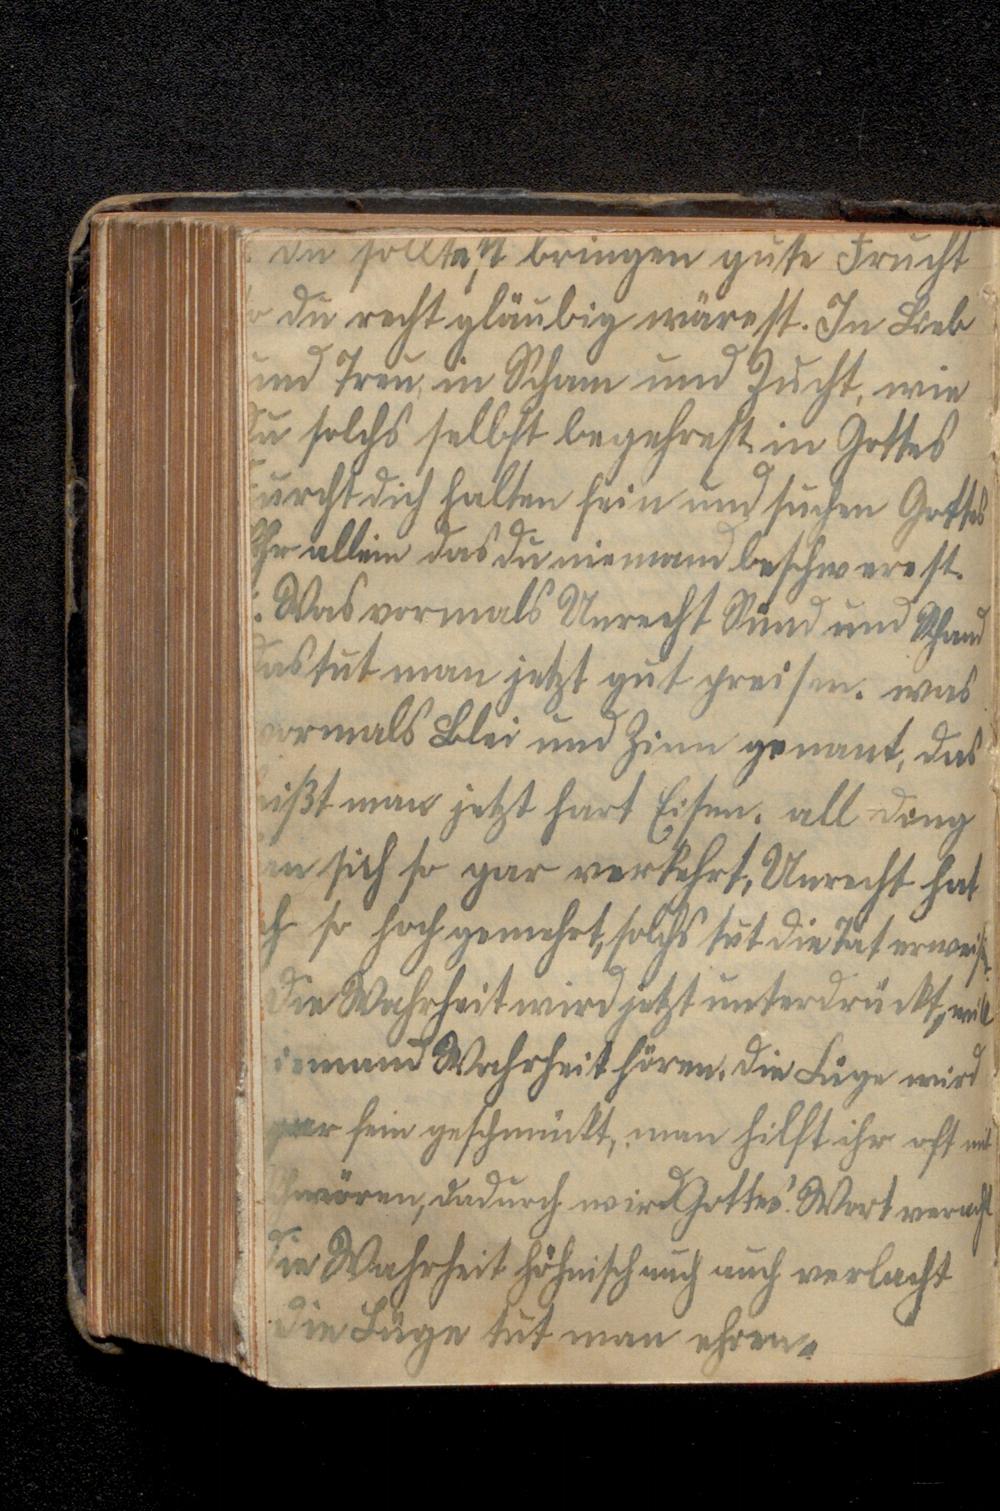 du solltest bringen gute Frucht
so du recht gläubig wärest. In Lieb
und Treu, in Scham und Zucht, wie
du solchs selbst begehrest in Gottes
Furcht dich halten fein und suchen Gottes
Ehr allein das du niemand beschwerest.
Was vormals Unrecht Sünd und Schand
das tut man jetzt gut preisen. was
vormals Blei und Zinn genant, das
heißt man jetzt hart Eisen. all Ding
han sich so gar verkehrt, Unrecht hat
sich so hoch gemehrt, solchs tut die Tat erweisen.
Die Wahrheit wird jetzt unterdrückt, will
niemand Wahrheit hören. die Lüge wird
gar fein geschmückt, man hilft ihr oft mit
schwören, dadurch wird Gottes Wort veracht
die Wahrheit höhnisch auch auch verlacht
die Lüge tut man ehren.